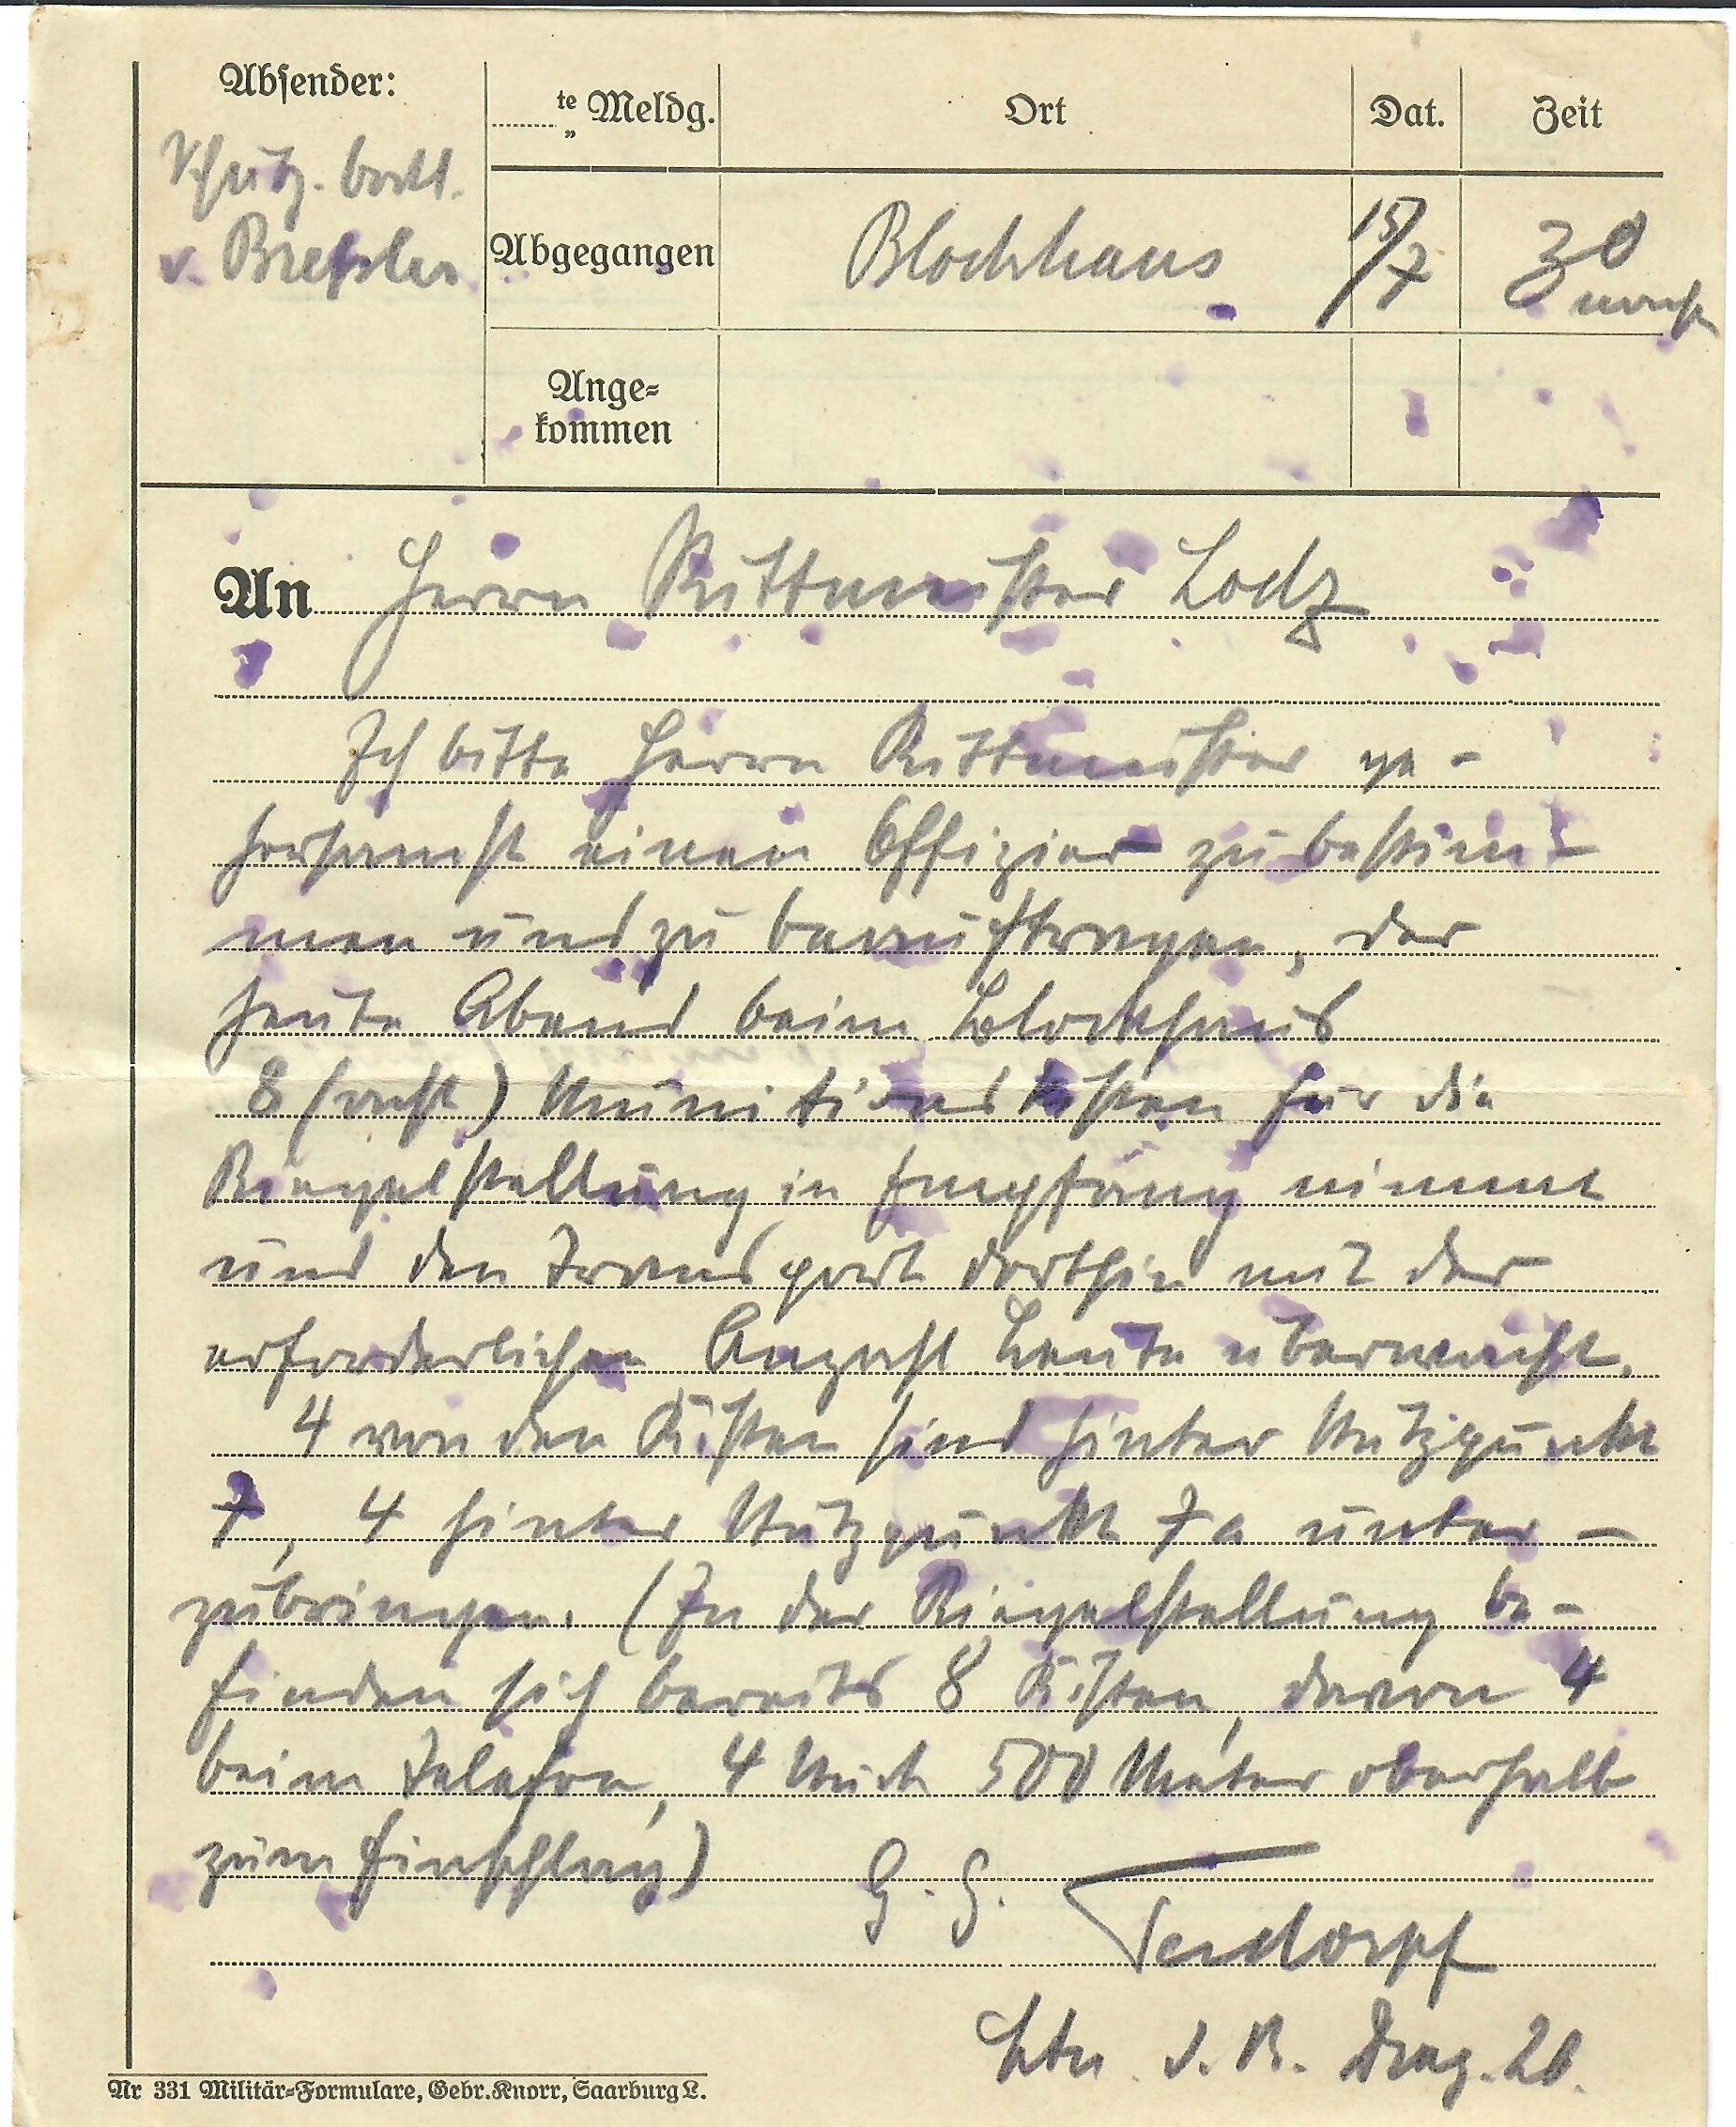 Absender:
te Meldg.
"
Ort
Dat.
Zeit
Schütz. batl.
v. Breßler
Abgegangen
Blockhaus
15/7
3 0
nachm
Ange-
kommen
An Herrn Rittmeister Lodz
Ich bitte Herrn Rittmeister ge-
horsamst einen Offizier zu bestim-
men und zu beauftragen, der
heute Abend beim Blockhaus
8 (acht) Munitionskisten für die
Riegelstellung in Empfang nimmt
und den Transport dorthin mit der
erforderlichen Anzahl Leute überwacht.
4 von den Kisten sind hinter Stützpunkt
7, 4 hinter Stützpunkt 7a unter-
zubringen. (In der Riegelstellung be-
finden sich bereits 8 Kisten, davon 4
beim Telefon, 4 Stück 500 Meter oberhalb
zum Einschlag)
G. G. Tendorpf
Ltn. d. R. Drag. 20.
Nr 331 Militär-Formulare, Gebr. Knorr, Saarburg L.